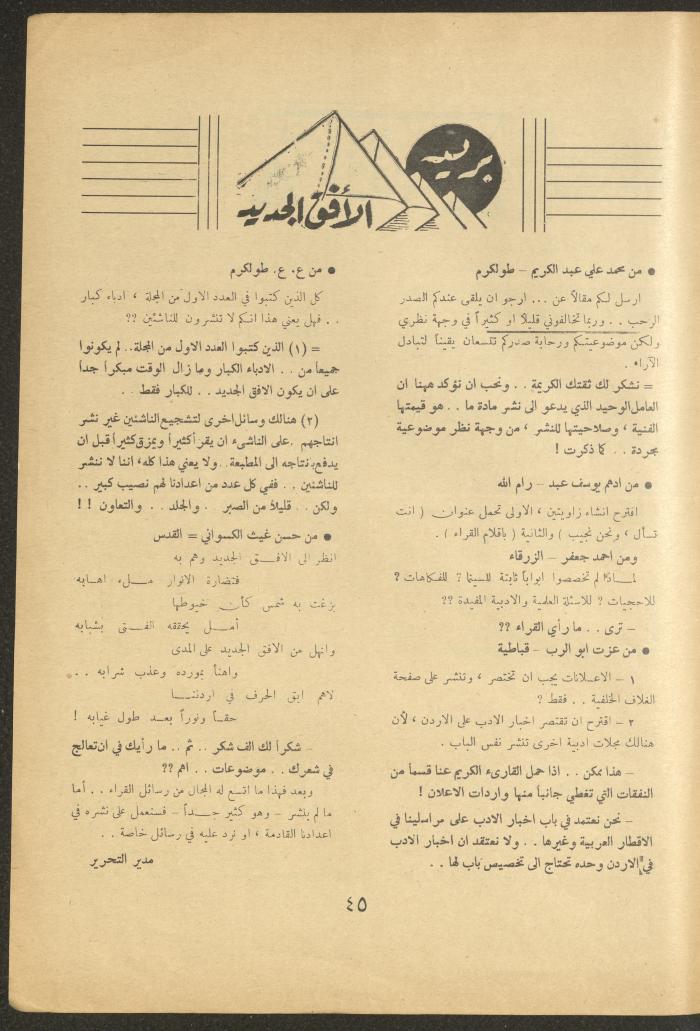 بريد
الأفق الجديد
● من محمد علي عبد الكريم – طولكرم
ارسل لكم مقالاً عن ... ارجو ان يلقى عندكم الصدر
الرحب . . وربما تخالفوني قليلاً او كثيراً في وجهة نظري
ولكن موضوعيتكم ورحابة صدركم تلسعان يقيناً لتبادل
الآراء .
= نشكر لك ثقتك الكريمة . . ونحب ان نؤكد ههنا ان
العامل الوحيد الذي يدعو الى نشر مادة ما . . هو قيمتها
الفنية ، وصلاحيتها للنشر ، من وجهة نظر موضوعية
مجردة . . كما ذكرت !
● من ادهم يوسف عبد – رام الله
اقترح انشاء زاويتين ، الاولى تحمل عنوان ( انت
تسأل ، ونحن نجيب ) والثانية ( باقلام القراء ) .
ومن احمد جعفر – الزرقاء
لمـاذا لم تخصصوا ابواباً ثابتة للسينما ؟ للفكاهات ؟
للاحجيات ؟ للاسئلة العلمية والادبية المفيدة ؟؟
– ترى . . ما رأي القراء ؟؟
● من عزت ابو الرب – قباطية
١ – الاعـلانات يجب ان تختصر ، وتنشر على صفحة
الغلاف الخلفية . . فقط ؟
٢ – اقترح ان تقتصر اخبار الادب على الاردن ، لأن
هنالك مجلات ادبية اخرى تنشر نفس الباب .
– هذا ممكن . . اذا حمل القارىء الكريم عنا قسماً من
النفقات التي تغطي جانباً منها واردات الاعلان !
– نحن نعتمد في باب اخبار الادب على مراسلينا في
الاقطار العربية وغيرها . . ولا نعتقد ان اخبار الادب
في الاردن وحده تحتاج الى تخصيص باب لها . .
● من ع . ع . طولكرم
كل الذين كتبوا في العدد الاول من المجلة ، ادباء كبار
. . فهل يعني هذا انكم لا تنشرون للناشئين ؟؟
= (١) الذين كتبوا العدد الاول من المجلة.. لم يكونوا
جميعاً من . . الادباء الكبار وما زال الوقت مبكراً جداً
على ان يكون الافق الجديد . . للكبار فقط . .
(٢) هنالك وسائل اخرى لتشجيع الناشئين غير نشر
انتاجهم . على الناشىء ان يقرأ كثيراً ويمزق كثيراً قبل ان
يدفع بنتاجه الى المطبعة.. ولا يعني هذا كله، اننا لا ننشر
للناشئين . . ففي كل عدد من اعدادنا لهم نصيب كبير ..
ولكن . . قليلاً من الصبر . . والجلد . . والتعاون ! !
● من حسن غيث الكسواني = القدس
انظر الى الافـق الجديد وهم به
فنضارة الانوار مـلء اهـابه
بزغت به شمس كأن خيوطها
أمـل يحققه الفـتى بشبابه
وانهل من الافق الجديد على المدى
واهنأ بمورده وعذب شرابه . .
لاهم ابق الحرف في اردننـا
حقـاً ونوراً بعـد طول غيابه !
– شكراً لك الف شكر . . ثم . . ما رأيك في ان تعالج
في شعرك . . موضوعات . . اهم ؟؟
وبعد فهذا ما اتسع له المجال من رسائل القراء . . أما
ما لم ينشر – وهو كثير جـداً – فسنعمل على نشره في
اعدادنا القادمة ، او نرد عليه في رسائل خاصة . .
مدير التحرير
٤٥